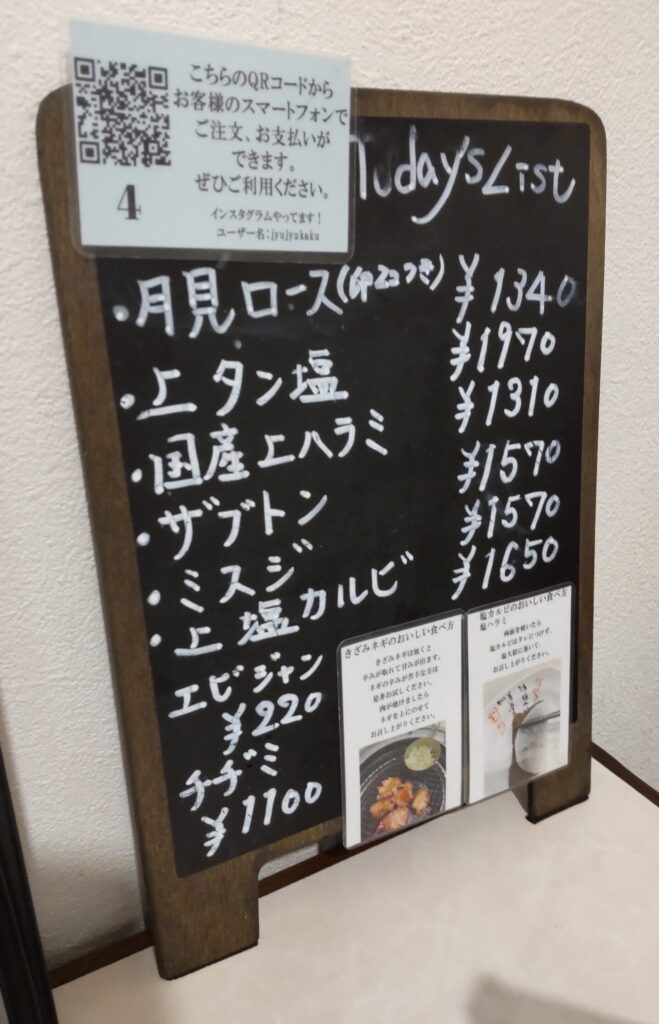 こちらのQRコードから
お客様のスマートフォンで
ご注文、お支払いが
できます。
ぜひご利用ください。
インスタグラムやってます！
ユーザー名：jyujyukaku
4
Tudays List
・月見ロース(卵2コつき) ¥1340
・上タン塩 ¥1970
・国産上ハラミ ¥1310
・ザブトン ¥1570
・ミスジ ¥1570
・上塩カルビ ¥1650
エビジャン
¥220
チヂミ
¥1100
きざみネギのおいしい食べ方
きざみネギは焼くと
辛みが取れて甘みが出ます。
ネギの辛みが苦手な方は
是非お試しください。
肉が焼けましたら
ネギを上にのせて
お召し上がりください。
塩カルビのおいしい食べ方
塩ハラミ
両面を焼いたら
塩カルビはタレにつけず、
お召し上がりください。